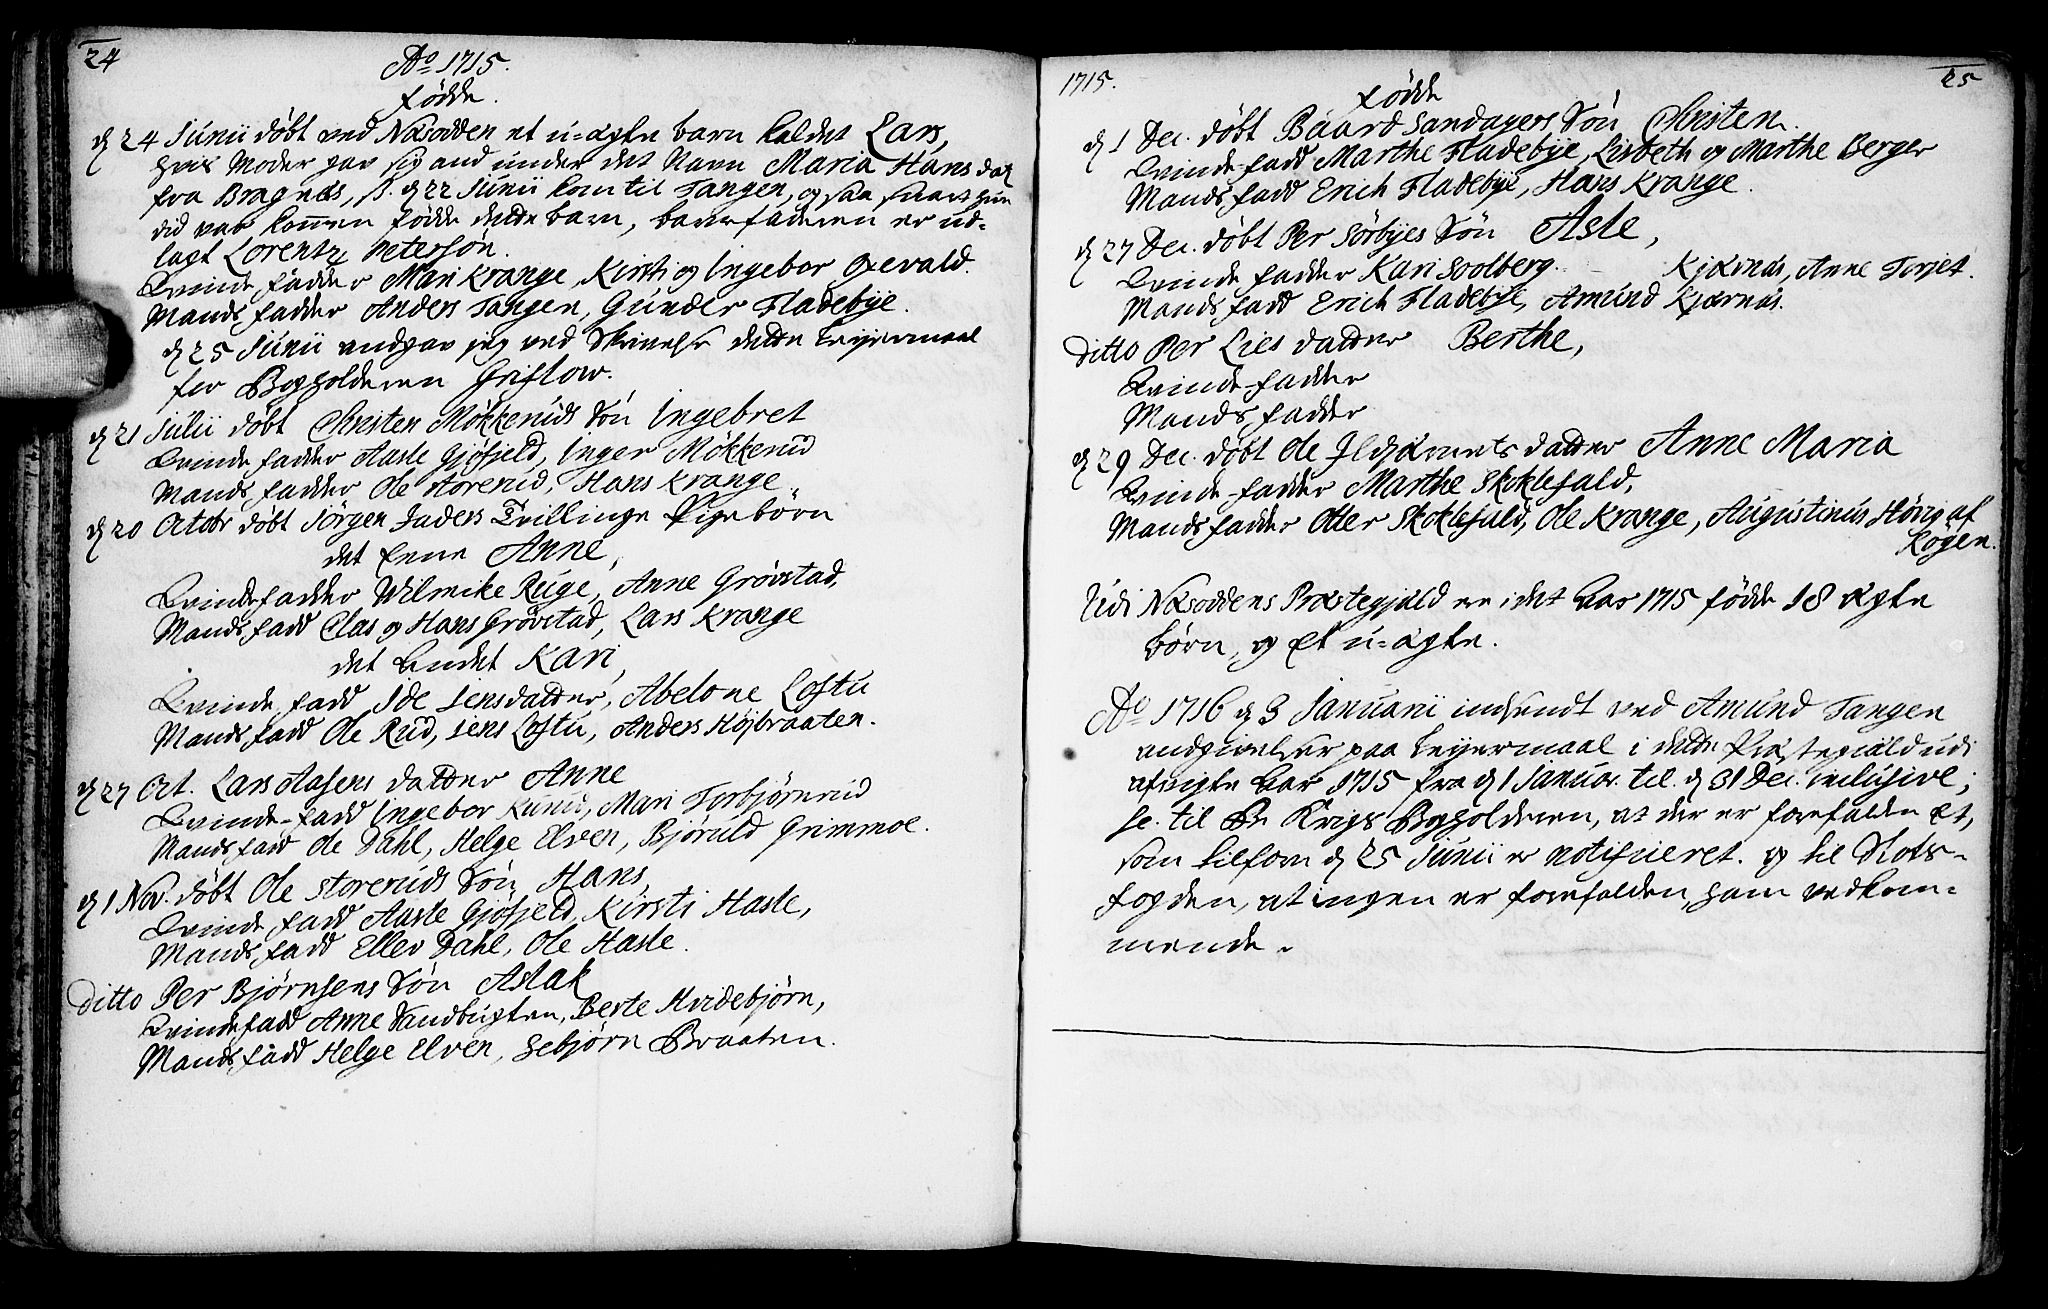 24
Ao 1715.
fødde.
d 24 Junii døbt ved Næsodden et u-ægte barn kaldet Lars,
hvis Moder gav sig and under det Navn Maria Hans dat
fra Bragnæs, d 22 Junii kom til Tangen, og saa snart hun
did var kom̄en fødde dette barn, barnefaderen er ud-
lagt Lorentz Petersøn.
Qvinde fadder Mari Krange, Kirsti og Ingebor Oxevald.
Mands fadder Anders Tangen, Gunder Fladebÿe.
d 25 Junii andgav jeg ved Skrivelse dette Leÿermaal
for Bogholderen Griflow.
d 21 Julii døbt Christen Møkkeruds Søn Ingebret
Qvinde fadder Aasle Gjøfjeld, Inger Møkkerud
Mands fadder Ole Storerud, Hans Krange.
d 20 Octobr døbt Jørgen Jaders Tvillinge Pigebørn
det Eene Anne,
Qvinde fadder Wilmike Ruge, Anne Grøvstad,
Mands fadd Clas og Hans Grøvstad, Lars Krange
det Andet Kari,
Qvinde fadd Ide Jensdatter, Abelone Loftu
Mands fadd Ole Rud, Jens Loftu, Anders Højbraaten.
d 27 Oct. Lars Aasens datter Anne
Qvinde-fadd Ingebor Ruud, Mari Torbjørnrud
Mands fadd Ole Dahl, Helge Elven, Bjøruld Grimmoe.
d 1 Nov. døbt Ole Storeruds Søn Hans,
Qvinde fadd Aasle Gjøfjeld, Kirsti Hasle,
Mands fadd Ellev Dahl, Ole Hasle.
Ditto Per Bjørnsens Søn Aslak
Qvinde fadd Anne Sandbugten, Berte Hvidebjørn,
Mands fadd Helge Elven, Gebjørn Braaten.
1715.
25
fødde
d 1 Dec. døbt Baard Sandagers Søn Christen.
Qvinde-fadd Marthe Fladebÿe, Lisbeth og Marthe Berger
Mands fadd Erich Fladebÿe, Hans Krange.
d 27 Dec. døbt Per Sørbÿes Søn Asle,
Qvinde fadder Kari Soolberg. Kjærnæs, Anne Torjet.
Mands fadd Erich Fladebÿe, Amund Kjærnæs.
Ditto Per Lies datter Berthe,
Qvinde fadder
Mands fadder
d 29 Dec. døbt Ole Ildjærnets datter Anne Maria
Qvinde-fadder Marthe Skoklefald,
Mands fadder Otter Skoklefald, Ole Krange, Augustinus Høvig af
Røgen.
Udi Næsoddens Præstegjæld er i det Aar 1715 fødde 18 ægte
børn, og Et u-ægte.
Ao 1716 d 3 Januarii indsendt ved Amund Tangen
andgivelser paa Leÿermaal i dette Præstegiæld udi
afvigte Aar 1715 fra d 1 Januar. til d 31 Dec. inclusive;
sc. til Krigs Bogholderen, at der er forefalden Et,
som tilforn d 25 Junii er notificeret. og til Slots-
fogden, at ingen er forefalden, ham vedkom-
mende.